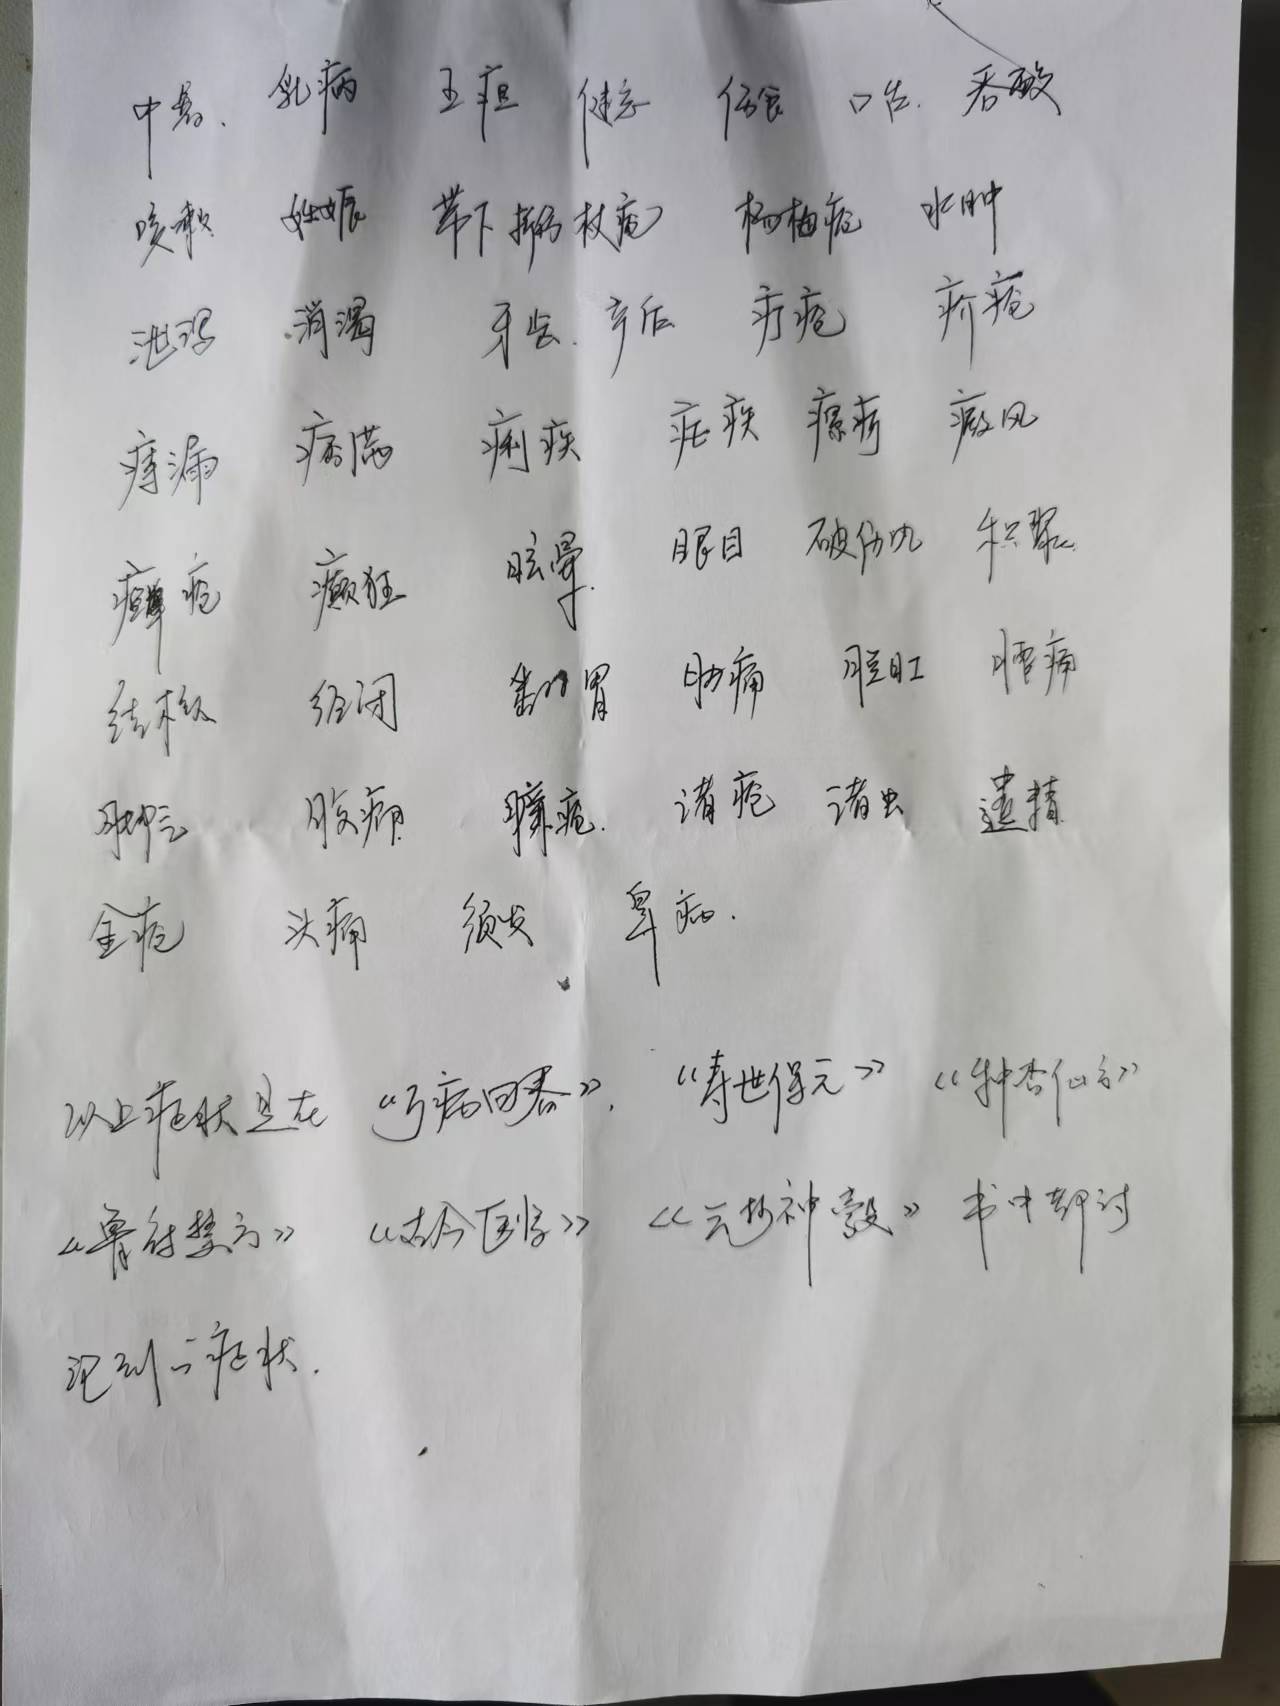 中暑. 乳病 五疸 健忘 伤食 口舌. 吞酸
咳嗽 妊娠 带下 折伤 杖疮 杨梅疮 水肿
泄泻 消渴 牙齿. 产后 疔疮 疥疮
痔漏 痞满 痢疾 疟疾 瘰疬 癜风
癣疮 癫狂 眩晕 眼目 破伤风 积聚
结核 经闭 翻胃 胁痛 脱肛 腰痛
脚气 臁疮. 诸疮 诸虫 遗精
金疮 头痛 须发 鼻病.
以上症状是在《万病回春》, 《寿世保元》《种杏仙方》
《鲁府禁方》 《古今医鉴》 《云林神彀》 书中都讨
论到的症状.